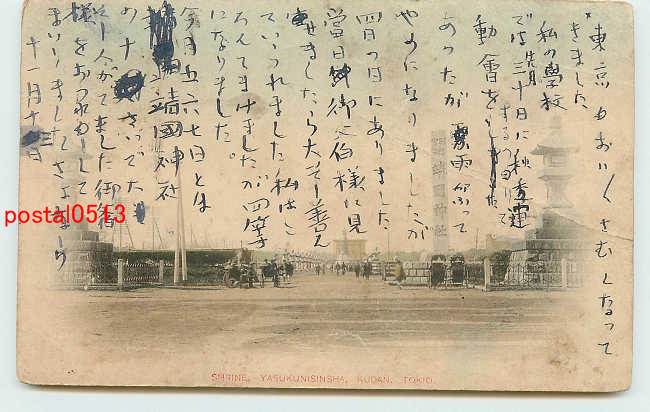 東京もおい〱さむくなって
きました
私の學校
では先月三十日に秋季運
動會をするつもりで
あったが雨がふって
やめになりましたが
四日の日にありました
當日御父伯様に見
せましたら大そー善く
ていらっれました私はこ
ろんでまけましたが四等
になりました。
今月五六七日とは
靖國神社
の さいでた
そー人がでました御
様をおつれもーして
まいりましたさよなーら
十一月十三日
靖國神社
SHRINE, YASUKUNISINSHA, KUDAN, TOKIO.
postal0513